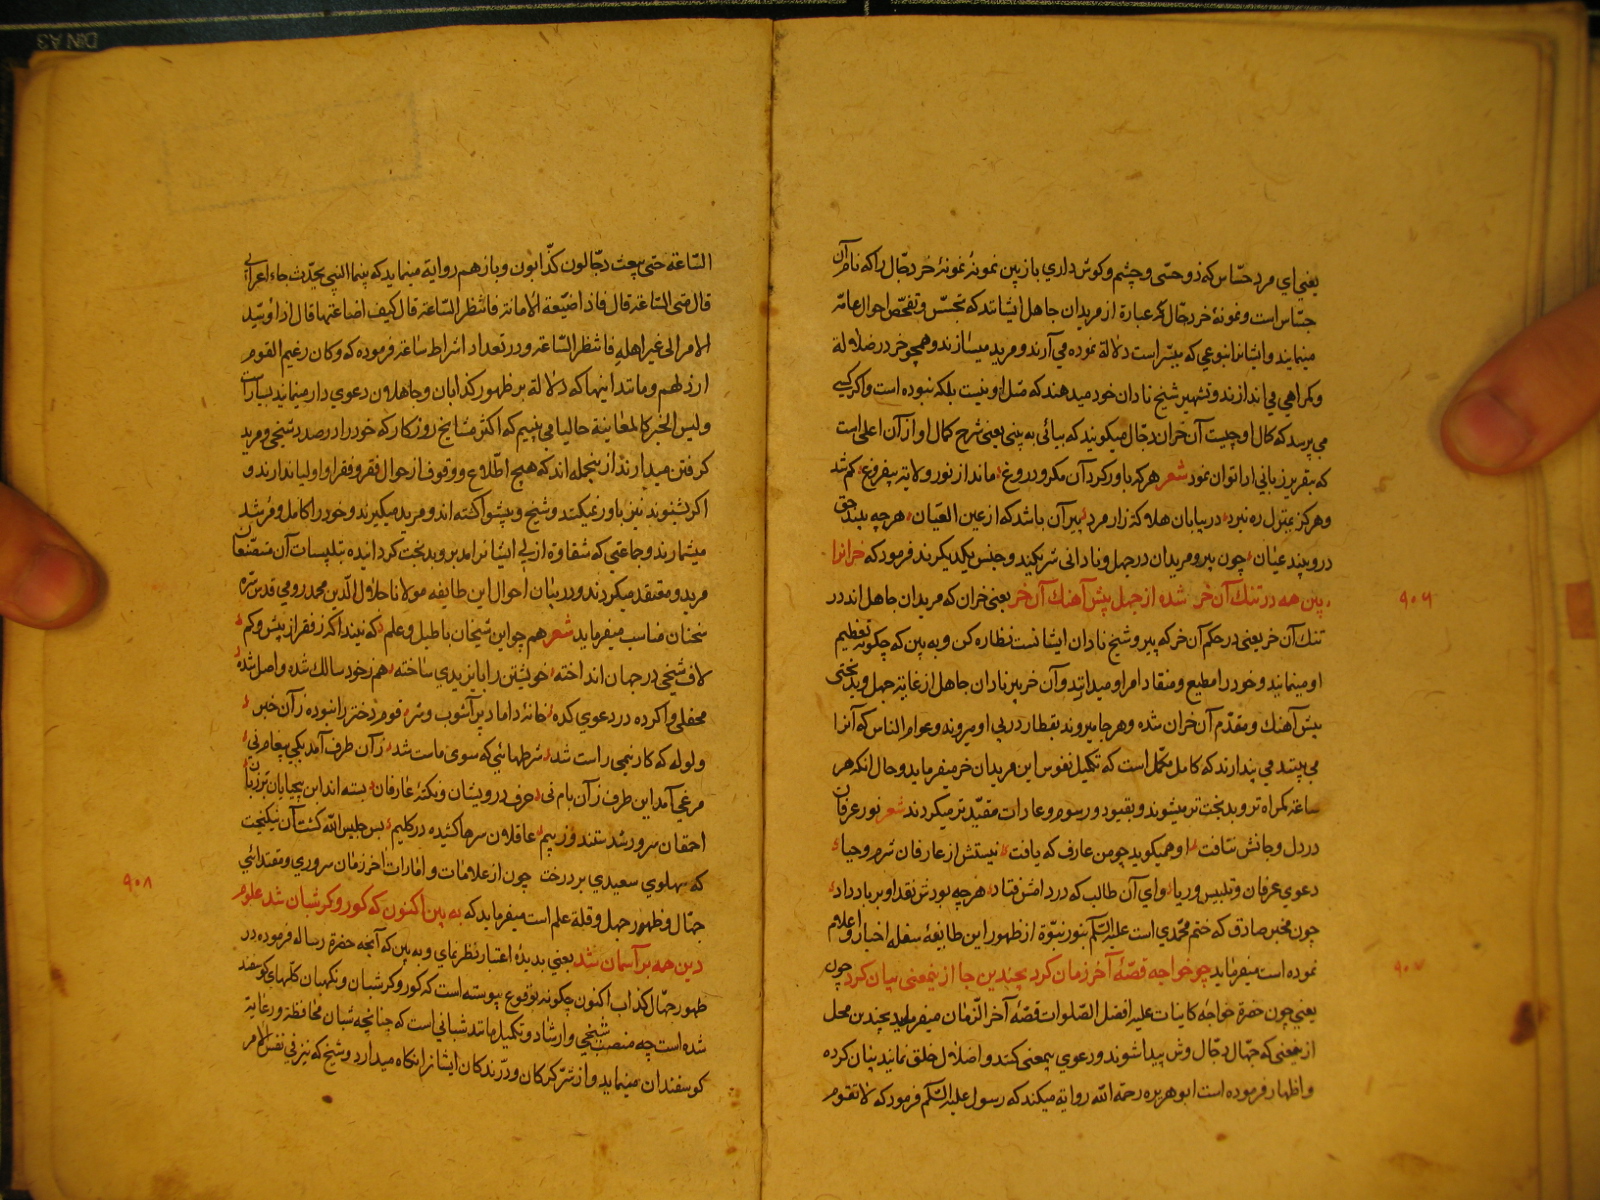 یعنی ای مرد حسّاس که ذو حسّی و چشم و کوش داری باز بین نمونهٔ خر دجّال را که نام آن
جسّاس است و نمونهٔ خر دجّال که عبارة از مریدان جاهل ایشانند که تجسّس و تفحّص احوال عامّه
مینمایند و ایشانرا بنوعی که میسّر است دلالة نموده می آرند و مرید میسازند و همچو خر در ضلالة
و کمراهی می اندازند و تشهیر شیخ نادان خود میدهند که مثل او نیست بلکه نبوده است و اکر کسی
می پرسد که کمال او چیست آن خران دجّال میکویند که بیائی به بینی یعنی شرح کمال او از آن اعلی است
که بتقریر زبانی ادا توان نمود شعر هر که باور کرد آن مکر و دروغ ماند از نور ولایة بیفروغ کم شد
و هرکز بمنزل ره نبرد در بیابان هلاکة زار مرد پیر آن باشد که از عین العیان هرچه بیند حق
درو بیند عیان چون پیر و مریدان در جهل و نادانی شریکند و جنس یکدیکرند فرمود که خرانرا
بین همه در تنك آن خر شده از جهل پیش آهنك آن خر یعنی خران که مریدان جاهل اند در
تنك آن خر یعنی در حکم آن خر که پیر و شیخ نادان ایشانست نظاره کن و به بین که چکونه تعظیم
او مینمایند و خود را مطیع و منقاد امر او میدانند و آن خر پیر نادان جاهل از غایة جهل و بدبختی
پیش آهنك و مقدّم آن خران شده و هر جا میروند بقطار در پی او میروند و عوام الناس که آنرا
می بینند می پندارند که کامل مکمّل است که تکمیل نفوس این مریدان خر میفرماید و حال انکه هر
ساعة کمراه تر و بدبخت تر میشوند و بقیود و رسوم و عادات مقیّد تر میکردند شعر نور عرفان
در دل و جانش نتافت او همیکوید چو من عارف که یافت نیستش از عارفان شرم و حیا
دعوی عرفان و تلبیس و ریا وای آن طالب که در دامش فتاد هرچه بودش نقد او بر باد داد
چون مخبر صادق که ختم محمّدی است علیه السّلم بنور نبوّة از ظهور این طایفهٔ سفله اخبار و اعلام
نموده است میفرماید چو خواجه قصّهٔ آخر زمان کرد بچندین جا ازینمعنی بیان کرد چون
یعنی چون حضرة خواجهٔ کاینات علیه افضل الصّلوات قصّهٔ آخر الزّمان میفرماید بچندین محل
ازینمعنی که جهّال دجّال وش پیدا شوند و دعوی بیمعنی کنند و اضلال خلق نمایند بیان کرده
و اظهار فرموده است ابو هریره رحمه الله روایة میکند که رسول علیه السّلم فرمود که لا تقوم
۹۰۶
۹۰۷
السّاعة حتی یبعث دجّالون کذّابون و باز هم روایة مینماید که بینما النبی یحدّث جاء اعرابی
قال متی السّاعة قال فاذا ضیّعة الامانة فانتظر السّاعة قال کیف اضاعتها قال اذا وسّد
الامر الی غیر اهله فانتظر السّاعة و در تعداد اشراط ساعة فرموده که و کان زعیم القوم
ارذلهم و مانند اینها که دلالة بر ظهور کذابان و جاهلان دعوی دار مینماید بسیارست
و لیس الخبر کالمعاینة حالیا می بینیم که اکثر مشایخ روزکار که خود را در صدد شیخی و مرید
کرفتن میدارند از ینجمله اند که هیچ اطّلاع و وقوف از حوال فقر و فقرا و اولیا ندارند و
اکر شنوند نیز باور نمیکنند و شیخ و پیشوا کشته اند و مرید میکیرند و خود را کامل و مرشد
میشمارند و جماعتی که شقاوة ازلی ایشانرا مدبر و بدبخت کردانیده بتلبیسات آن متصنّعان
مرید و معتقد میکردند و در بیان احوال این طایفه مولانا جلال الدّین محمد رومی قدس سّره
سخنان مناسب میفرماید شعر هم چو این شیخان با طبل و علم که نیند اکه ز فقر از بیش و کم
لاف شیخی در جهان انداخته خویشتن را بایزیدی ساخته هم ز خود سالك شده واصل شده
محفلی وا کرده در دعوی کده خانهٔ داماد پر آشوب و شر قوم دختر را نبوده ز آن خبر
ولوله که کار نیمی راست شد شرطهائی که سوی ماست شد ز آن طرف آمد یکی پیغام نی
مرغی آمد این طرف ز آن بام نی حرف درویشان و نکتهٔ عارفان بسته اند این بیحیایان بر زبان
احمقان سرور شدستند و ز بیم عاقلان سرها کشیده در کلیم بس جلیس الله کشت آن نیکبخت
که پهلوی سعیدی برد رخت چون از علامات و امارات اخر زمان سروری و مقتدائی
جهّال و ظهور جهل و قلة علم است میفرماید که به بین اکنون که کور و کر شبان شد علوم
دین همه بر آسمان شد یعنی بدیدهٔ اعتبار نظر نمای و به بین که آنچه حضرة رسالة فرموده در
ظهور جهّال کذاب اکنون چکونه بوقوع پیوسته است که کور و کر شبان و نکهبان کلّهای کوسفند
شده است چه منصب شیخی و ارشاد و تکمیل مانند شبانی است که چنانچه شبان محافظة و رعایة
کوسفندان مینماید و از شرّ کرکان و درّندکان ایشانرا نکاه میدارد و شیخ که نیز فی نفس الامر
۹۰۸